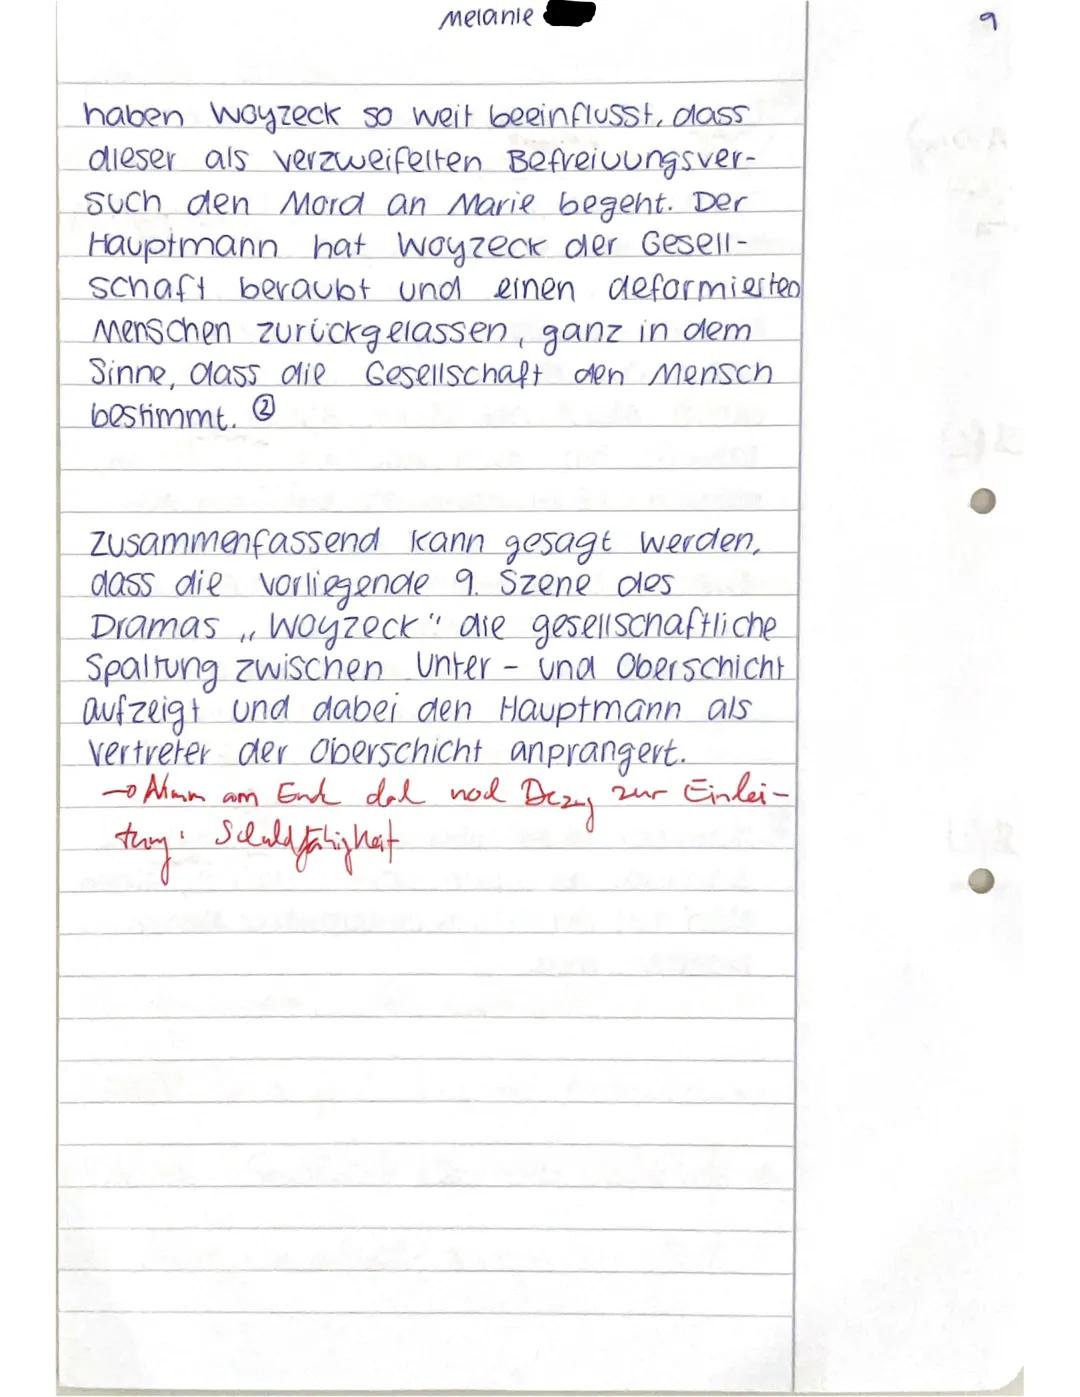 Melanie
9
haben Woyzeck so weit beeinflusst, dass
dieser als verzweifelten Befreiuungsver-
such den Mord an Marie begeht. Der
Hauptmann hat Woyzeck der Gesell-
schaft beraubt und einen deformierten
Menschen zurückgelassen, ganz in dem
Sinne, dass die Gesellschaft den Mensch
bestimmt. ②
Zusammenfassend kann gesagt werden,
dass die vorliegende 9. Szene des
Dramas „Woyzeck" die gesellschaftliche
Spaltung zwischen Unter- und Oberschicht
aufzeigt und dabei den Hauptmann als
Vertreter der Oberschicht anprangert.
→ Nimm am Ende doch noch Bezug zur Einlei-
tung: Schuldfähigkeit